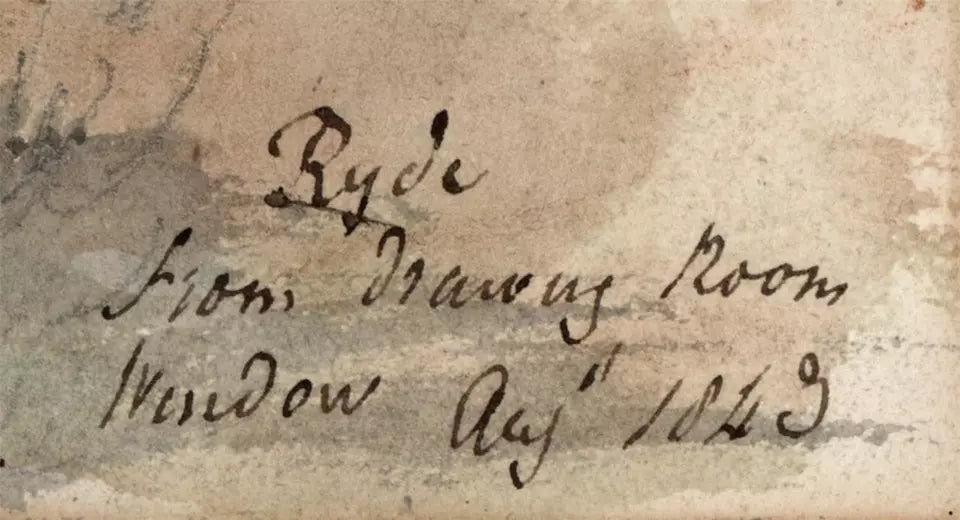 Ryde
From Drawing Room
Window Augt 1843